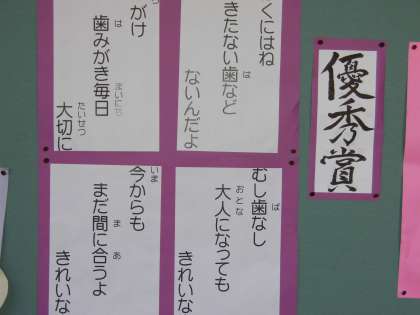 優秀賞
くにはね
きたない歯など
ないんだよ
がけ
歯みがき毎日
大切に
むし歯なし
大人になっても
きれいな
今からも
まだ間に合うよ
きれいな